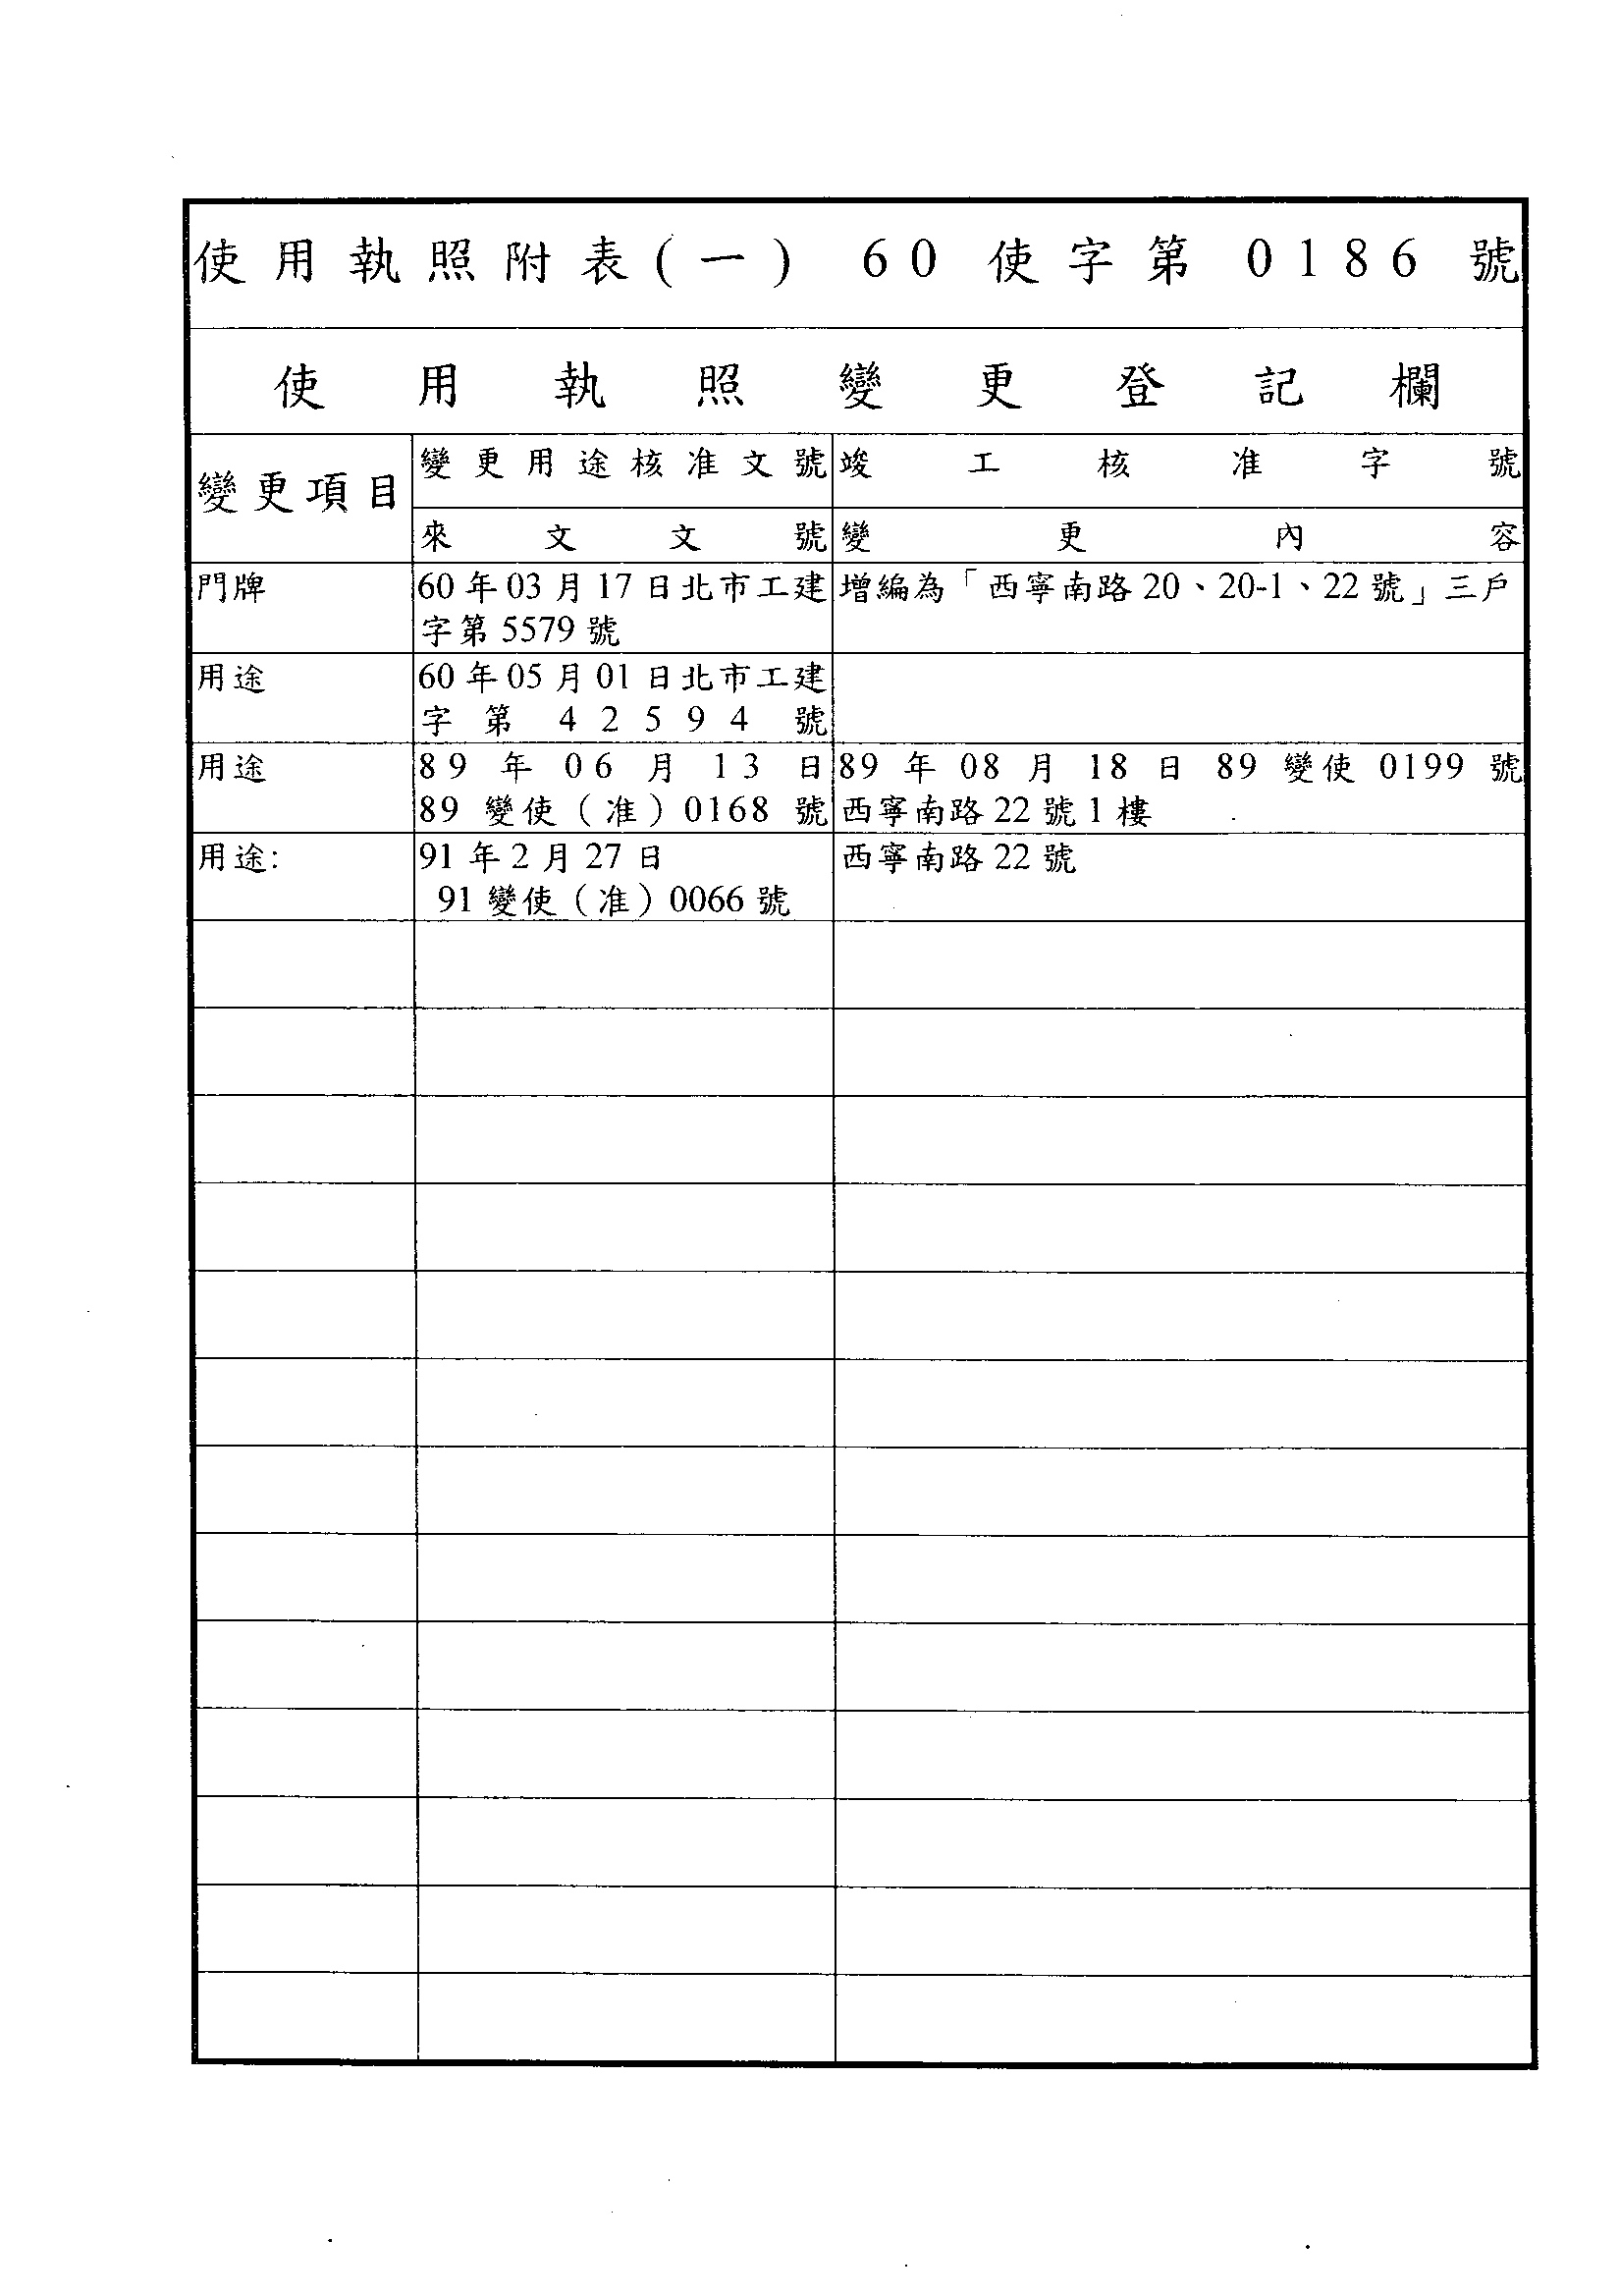 使用執照附表(一) 60使字第0186號
使用執照變更登記欄
變更項目
變更用途核准文號
竣工核准字號
來文文號
變更內容
門牌
60年03月17日北市工建
字第5579號
增編為「西寧南路20、20-1、22號」三戶
用途
60年05月01日北市工建
字第42594號
用途
89年06月13日
89變使（准）0168號
89年08月18日 89變使0199號
西寧南路22號1樓
用途:
91年2月27日
91變使（准）0066號
西寧南路22號